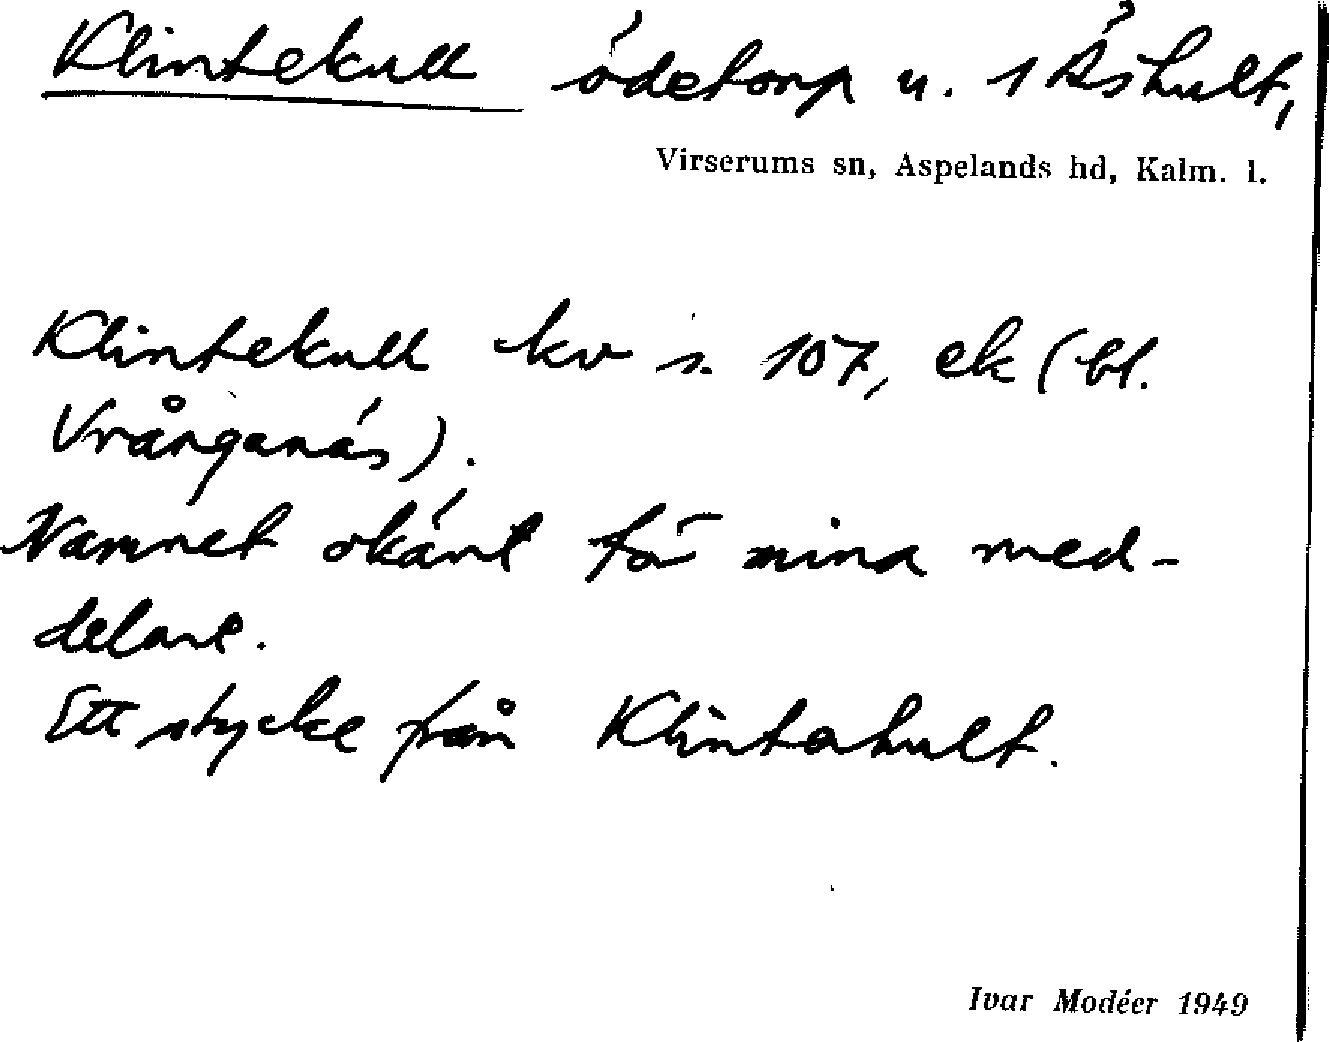 Klintekull ödetorp u. 1 Åshult,
Virserums sn, Aspelands hd, Kalm. l.
Klintekull kv s. 107, ek (bl.
Vrånganäs).
Namnet okänt för mina med-
delare.
Ett stycke från Klintahult.
Ivar Modéer 1949